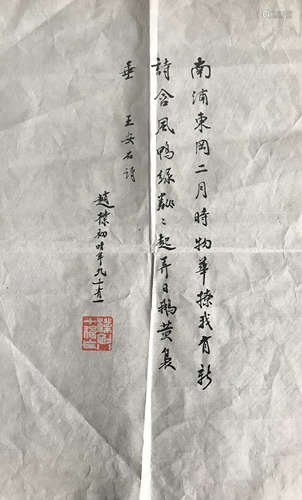 南浦東岡二月時物華撩我有新
詩含風鴨綠粼〻起弄日鵝黄裊〻
垂 王安石诗
趙樸初時年九十有一